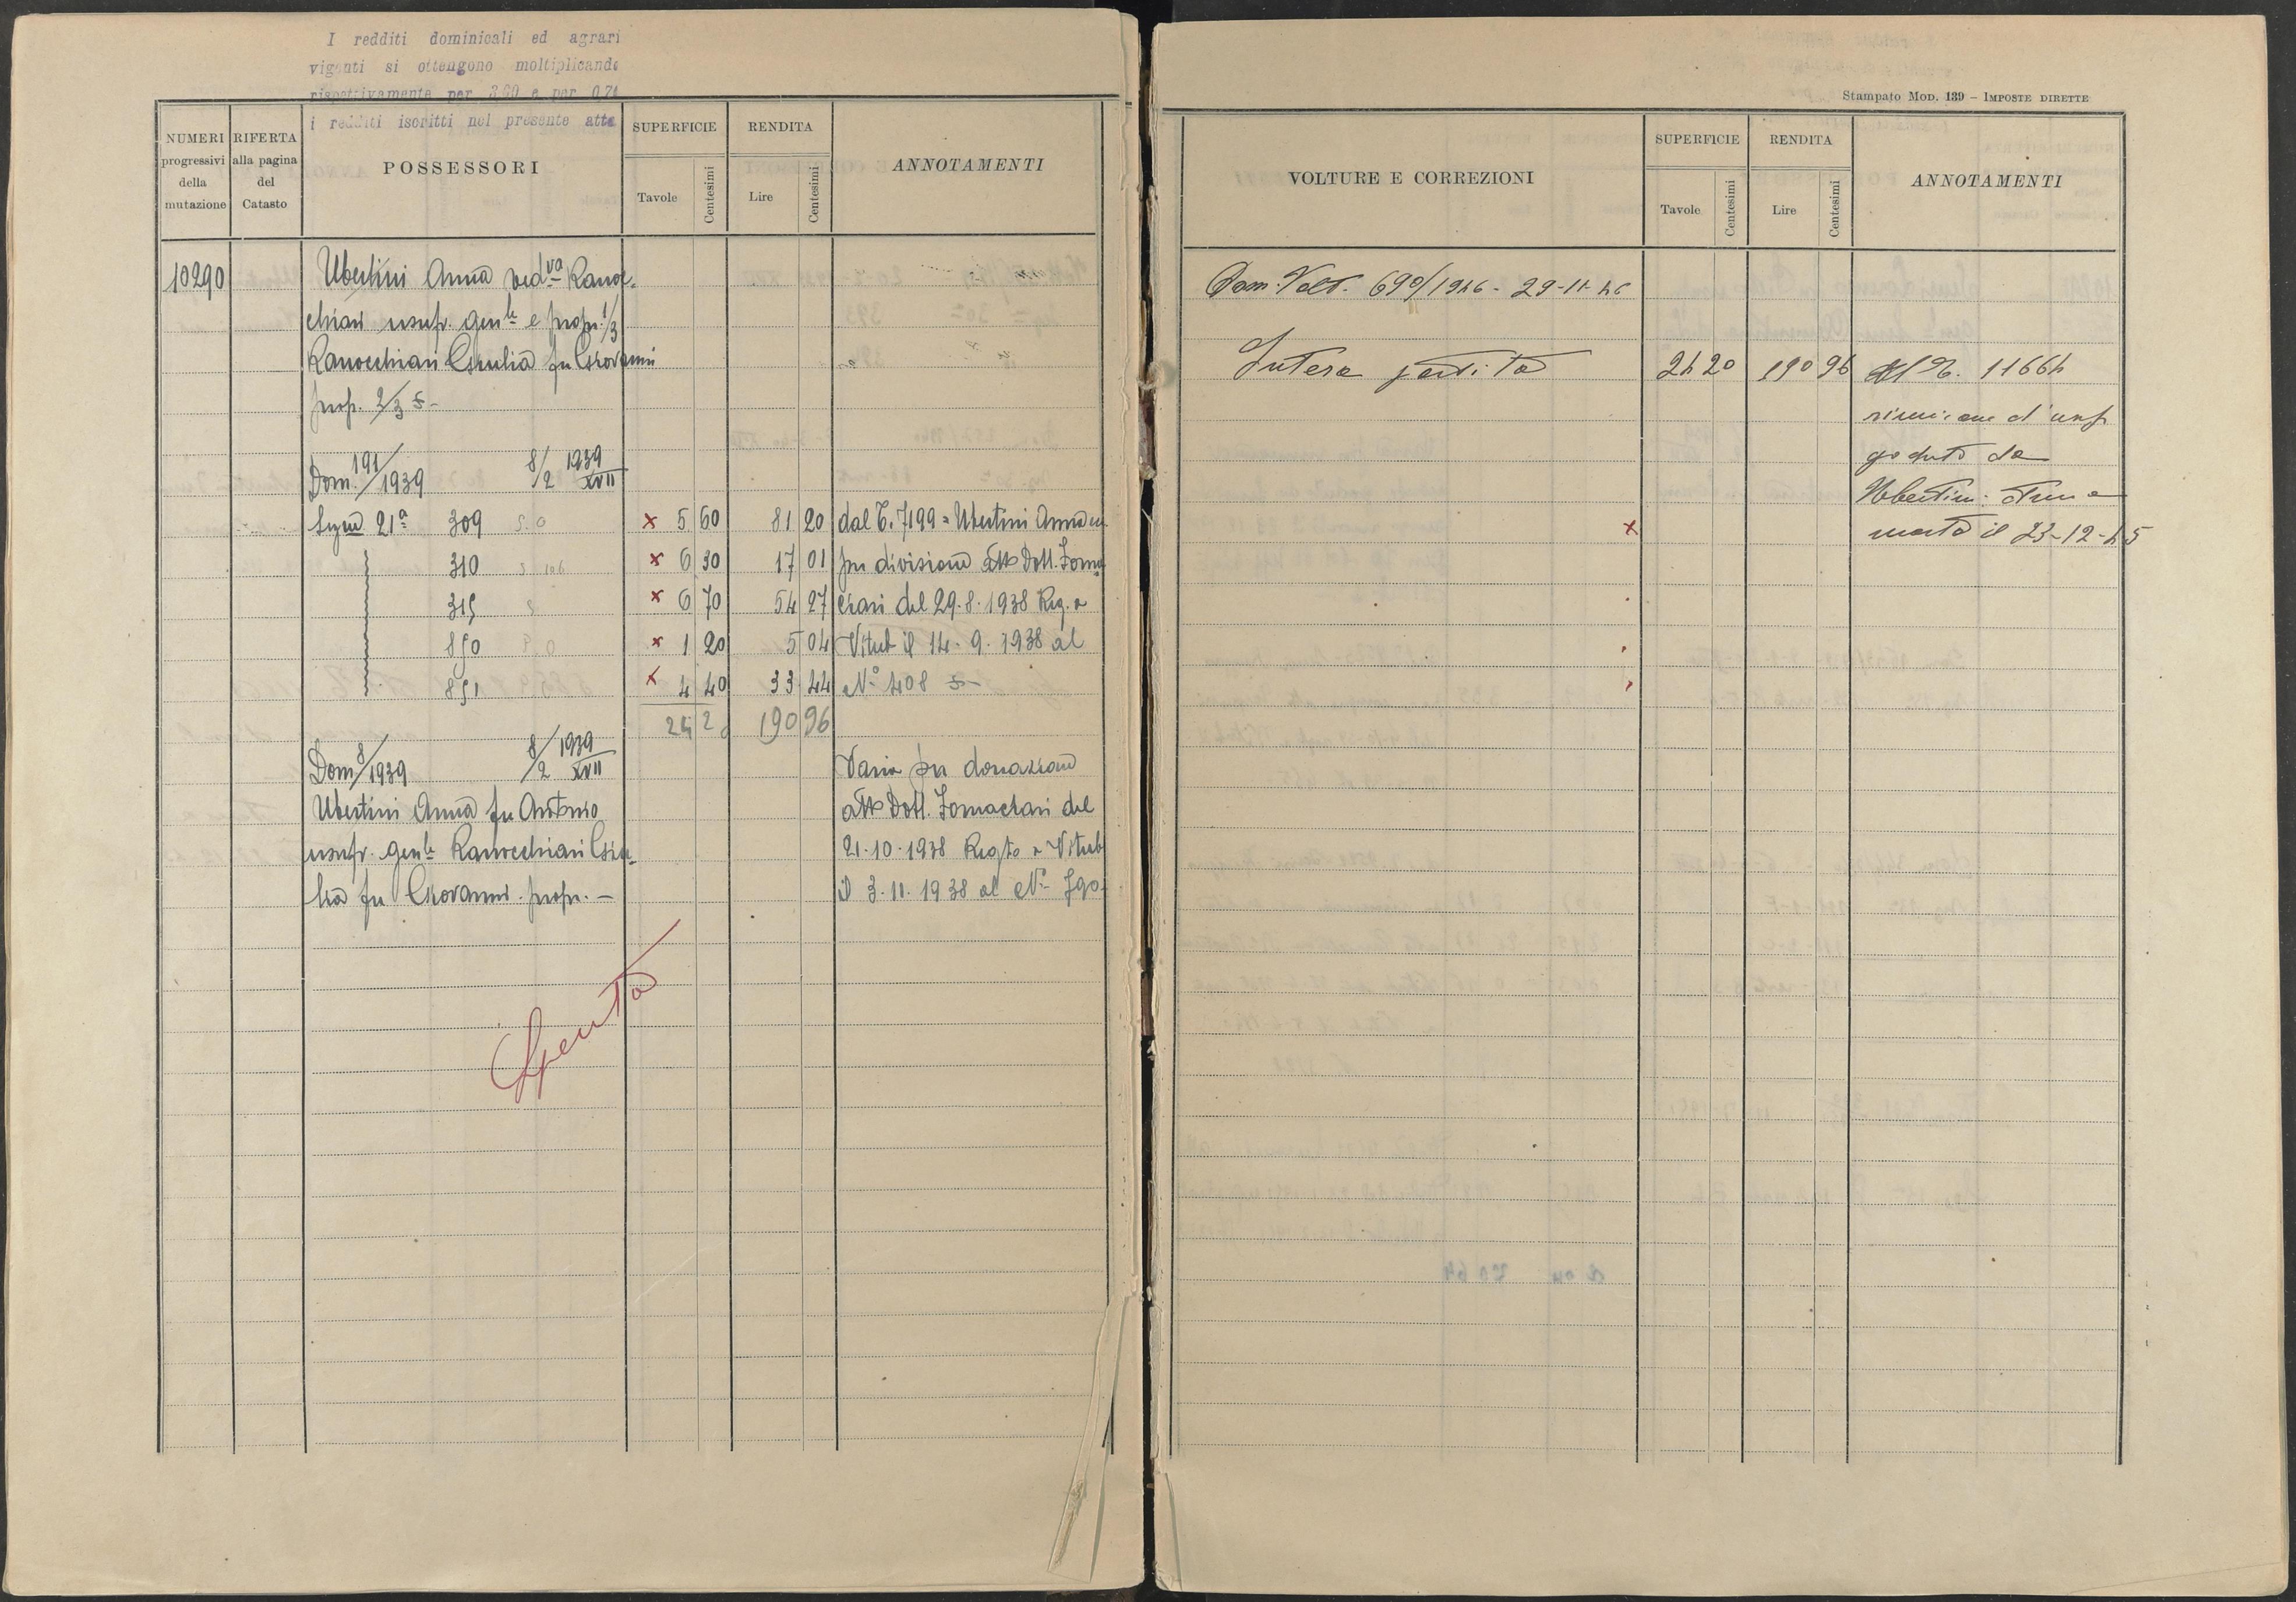 I redditi dominicali ed agrari
vigenti si ottengono moltiplicando
rispettivamente per 3,60 e per 0,74
i redditi iscritti nel presente atto
NUMERI progressivi della mutazione
RIFERTA alla pagina del Catasto
POSSESSORI
SUPERFICIE
Tavole Centesimi
RENDITA
Lire Centesimi
ANNOTAMENTI
10290 Ubertini Anna ved.va Ranoc-
chiari usufr. gen.le e propr. 1/3
Ranocchiari Giulia fu Giovanni
prop. 2/3
Dom. 191/1939 8/2 1939 XVII
Segue 21a 309 5 60 81 20 dal C. 7199 = Ubertini Anna
310 6 30 17 01 per divisione atto Dott. Forna
315 6 70 54 27 ciari del 29.8.1938 Reg. a
850 1 20 5 04 Viterb il 14.9.1938 al
851 4 40 33 44 N.o 408
24 2 190 96
Dom 8/1939 8/2 1939 XVII Varia per donazione
Ubertini Anna fu Antonio atto Dott. Fornaciari del
usufr. gen.le Ranocchiari Giu- 21.10.1938 Regto a Viterb
lia fu Giovanni propr. — il 3.11.1938 al No 790
Spenta
Stampato MOD. 139 – IMPOSTE DIRETTE
VOLTURE E CORREZIONI
SUPERFICIE
Tavole Centesimi
RENDITA
Lire Centesimi
ANNOTAMENTI
Dom. Volt. 690/1946 - 29-11-46
Intera partita 24 20 190 96 Al C. 11664
riunione d'usuf
goduto da
Ubertini Anna
morta il 23-12-45